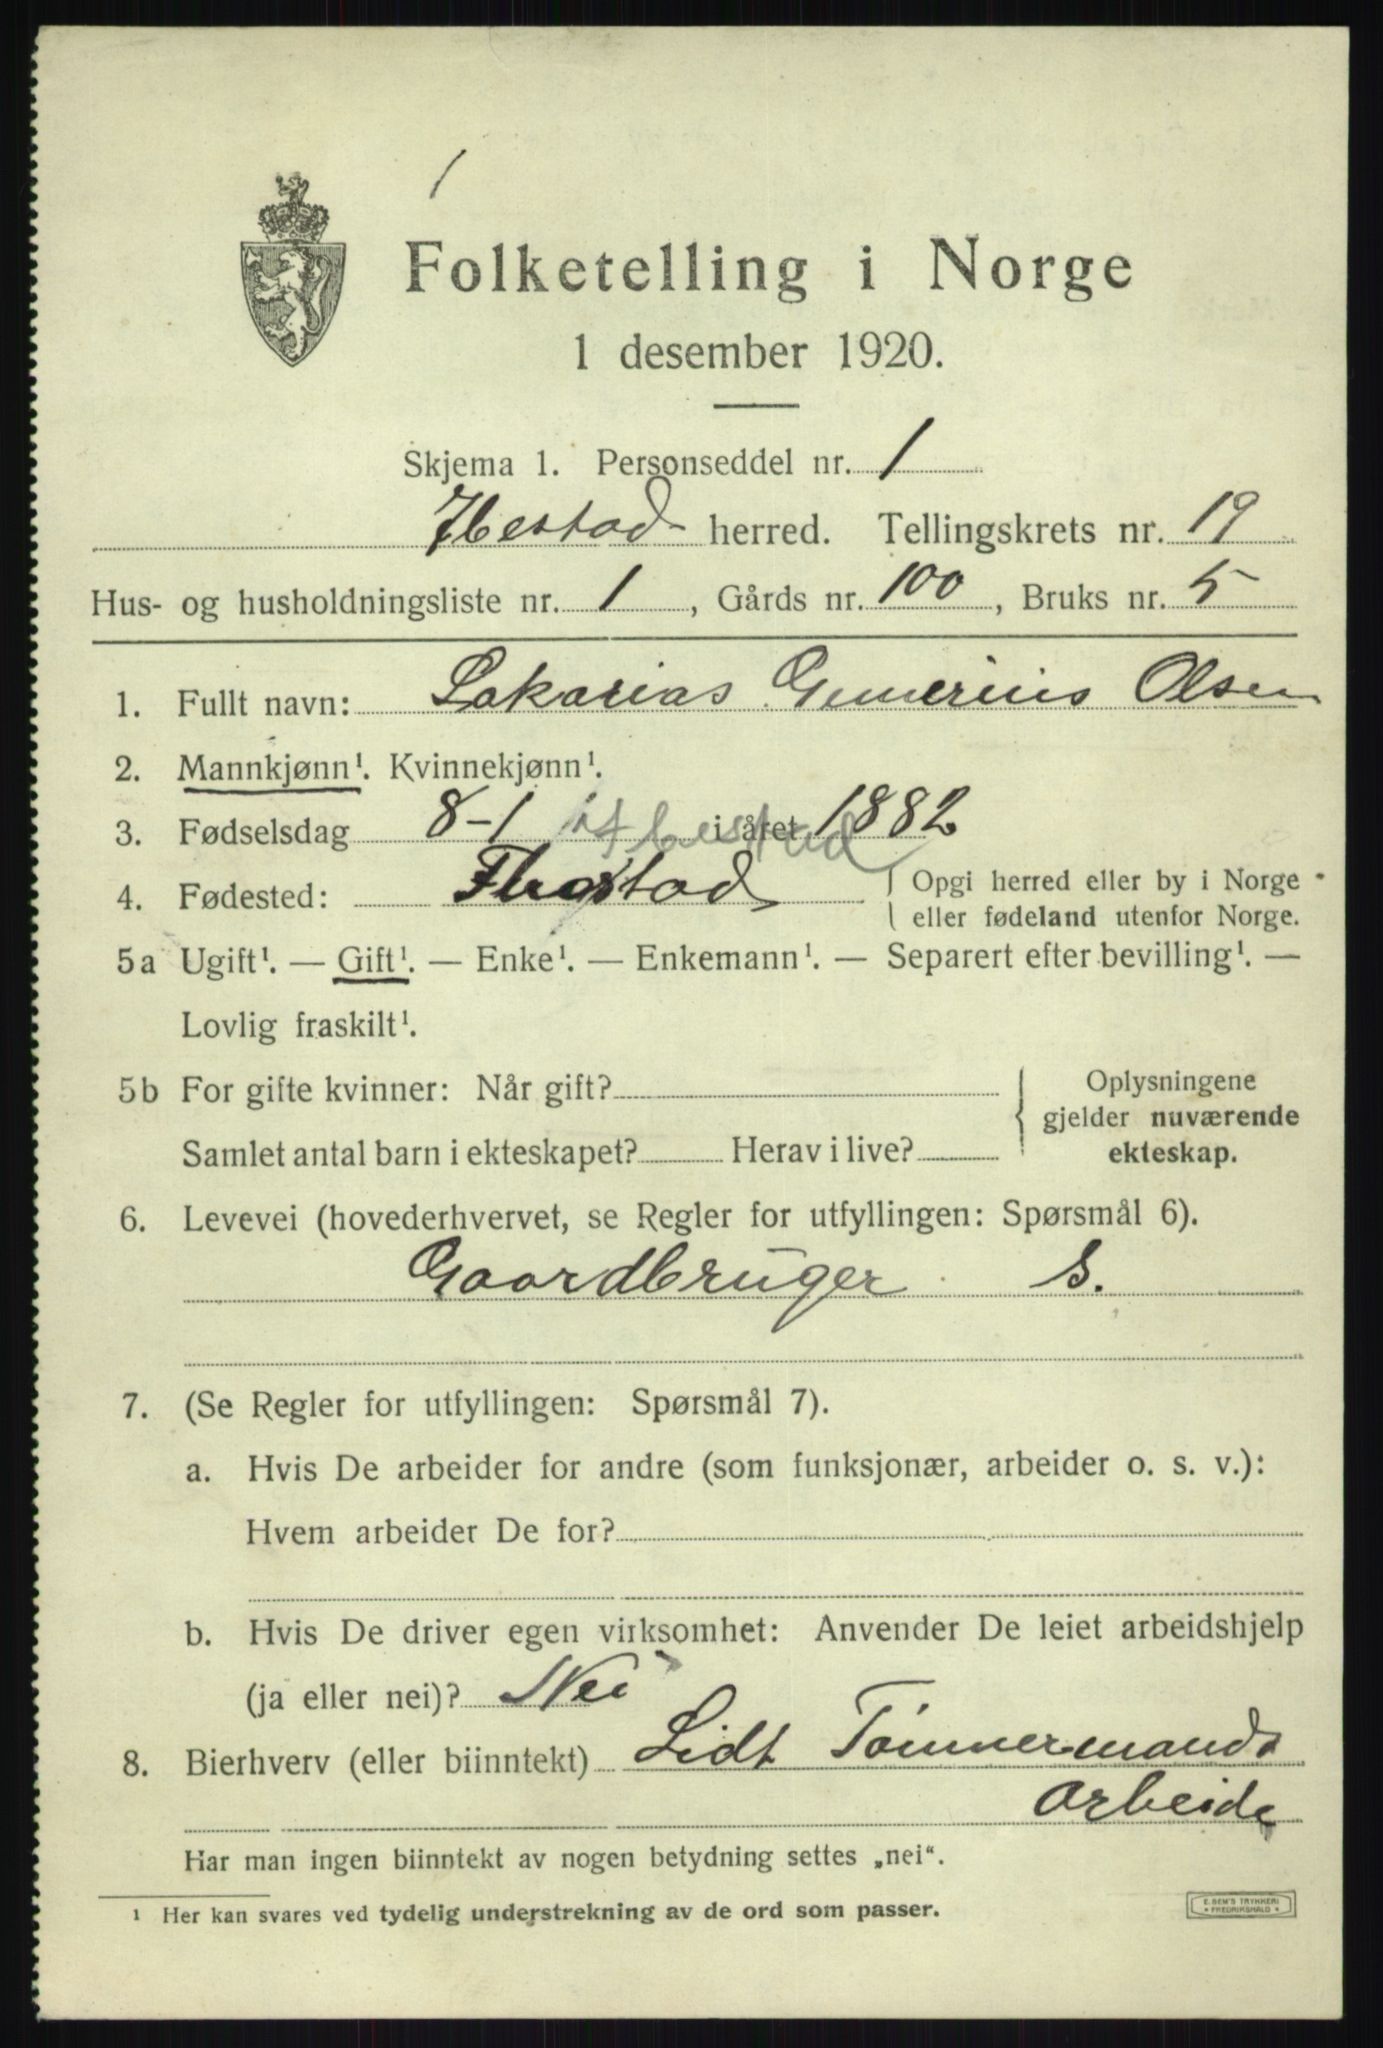 1
Folketelling i Norge
1 desember 1920.
Skjema 1. Personseddel nr. 1
Ibestad herred. Tellingskrets nr. 19
Hus- og husholdningsliste nr. 1, Gårds nr. 100, Bruks nr. 5
1. Fullt navn: Sakarias Olsen
2. Mannkjønn¹. Kvinnekjønn¹.
3. Fødselsdag 8-1 i året 1882
Ibestad
4. Fødested: Ibestad
Opgi herred eller by i Norge
eller fødeland utenfor Norge.
5a Ugift¹. — Gift¹. — Enke¹. — Enkemann¹. — Separert efter bevilling¹. —
Lovlig fraskilt¹.
5b For gifte kvinner: Når gift?
Samlet antal barn i ekteskapet? Herav i live?
Oplysningene
gjelder nuværende
ekteskap.
6. Levevei (hovederhvervet, se Regler for utfyllingen: Spørsmål 6).
Gaardbruger s.
7. (Se Regler for utfyllingen: Spørsmål 7).
a. Hvis De arbeider for andre (som funksjonær, arbeider o. s. v.):
Hvem arbeider De for?
b. Hvis De driver egen virksomhet: Anvender De leiet arbeidshjelp
(ja eller nei)? Nei
8. Bierhverv (eller biinntekt) Lidt Tømmermands
arbeide
Har man ingen biinntekt av nogen betydning settes „nei“.
¹ Her kan svares ved tydelig understrekning av de ord som passer.
E. SEM'S TRYKKERI
• FREDRIKSHALD •